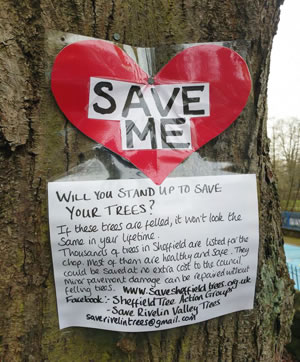 SAVE
ME
WILL YOU STAND UP TO SAVE
YOUR TREES?
If these trees are felled, it won't look the
Same in your lifetime.
Thousands of trees in Sheffield are listed for the
chop. Most of them are healthy and safe. They
could be saved at no extra cost to the Council
Minor pavement damage can be repaired without
felling trees. www.savesheffieldtrees.org.uk
Facebook:- Sheffield Tree Action Groups
- Save Rivelin Valley Trees
saverivelintrees@gmail.com